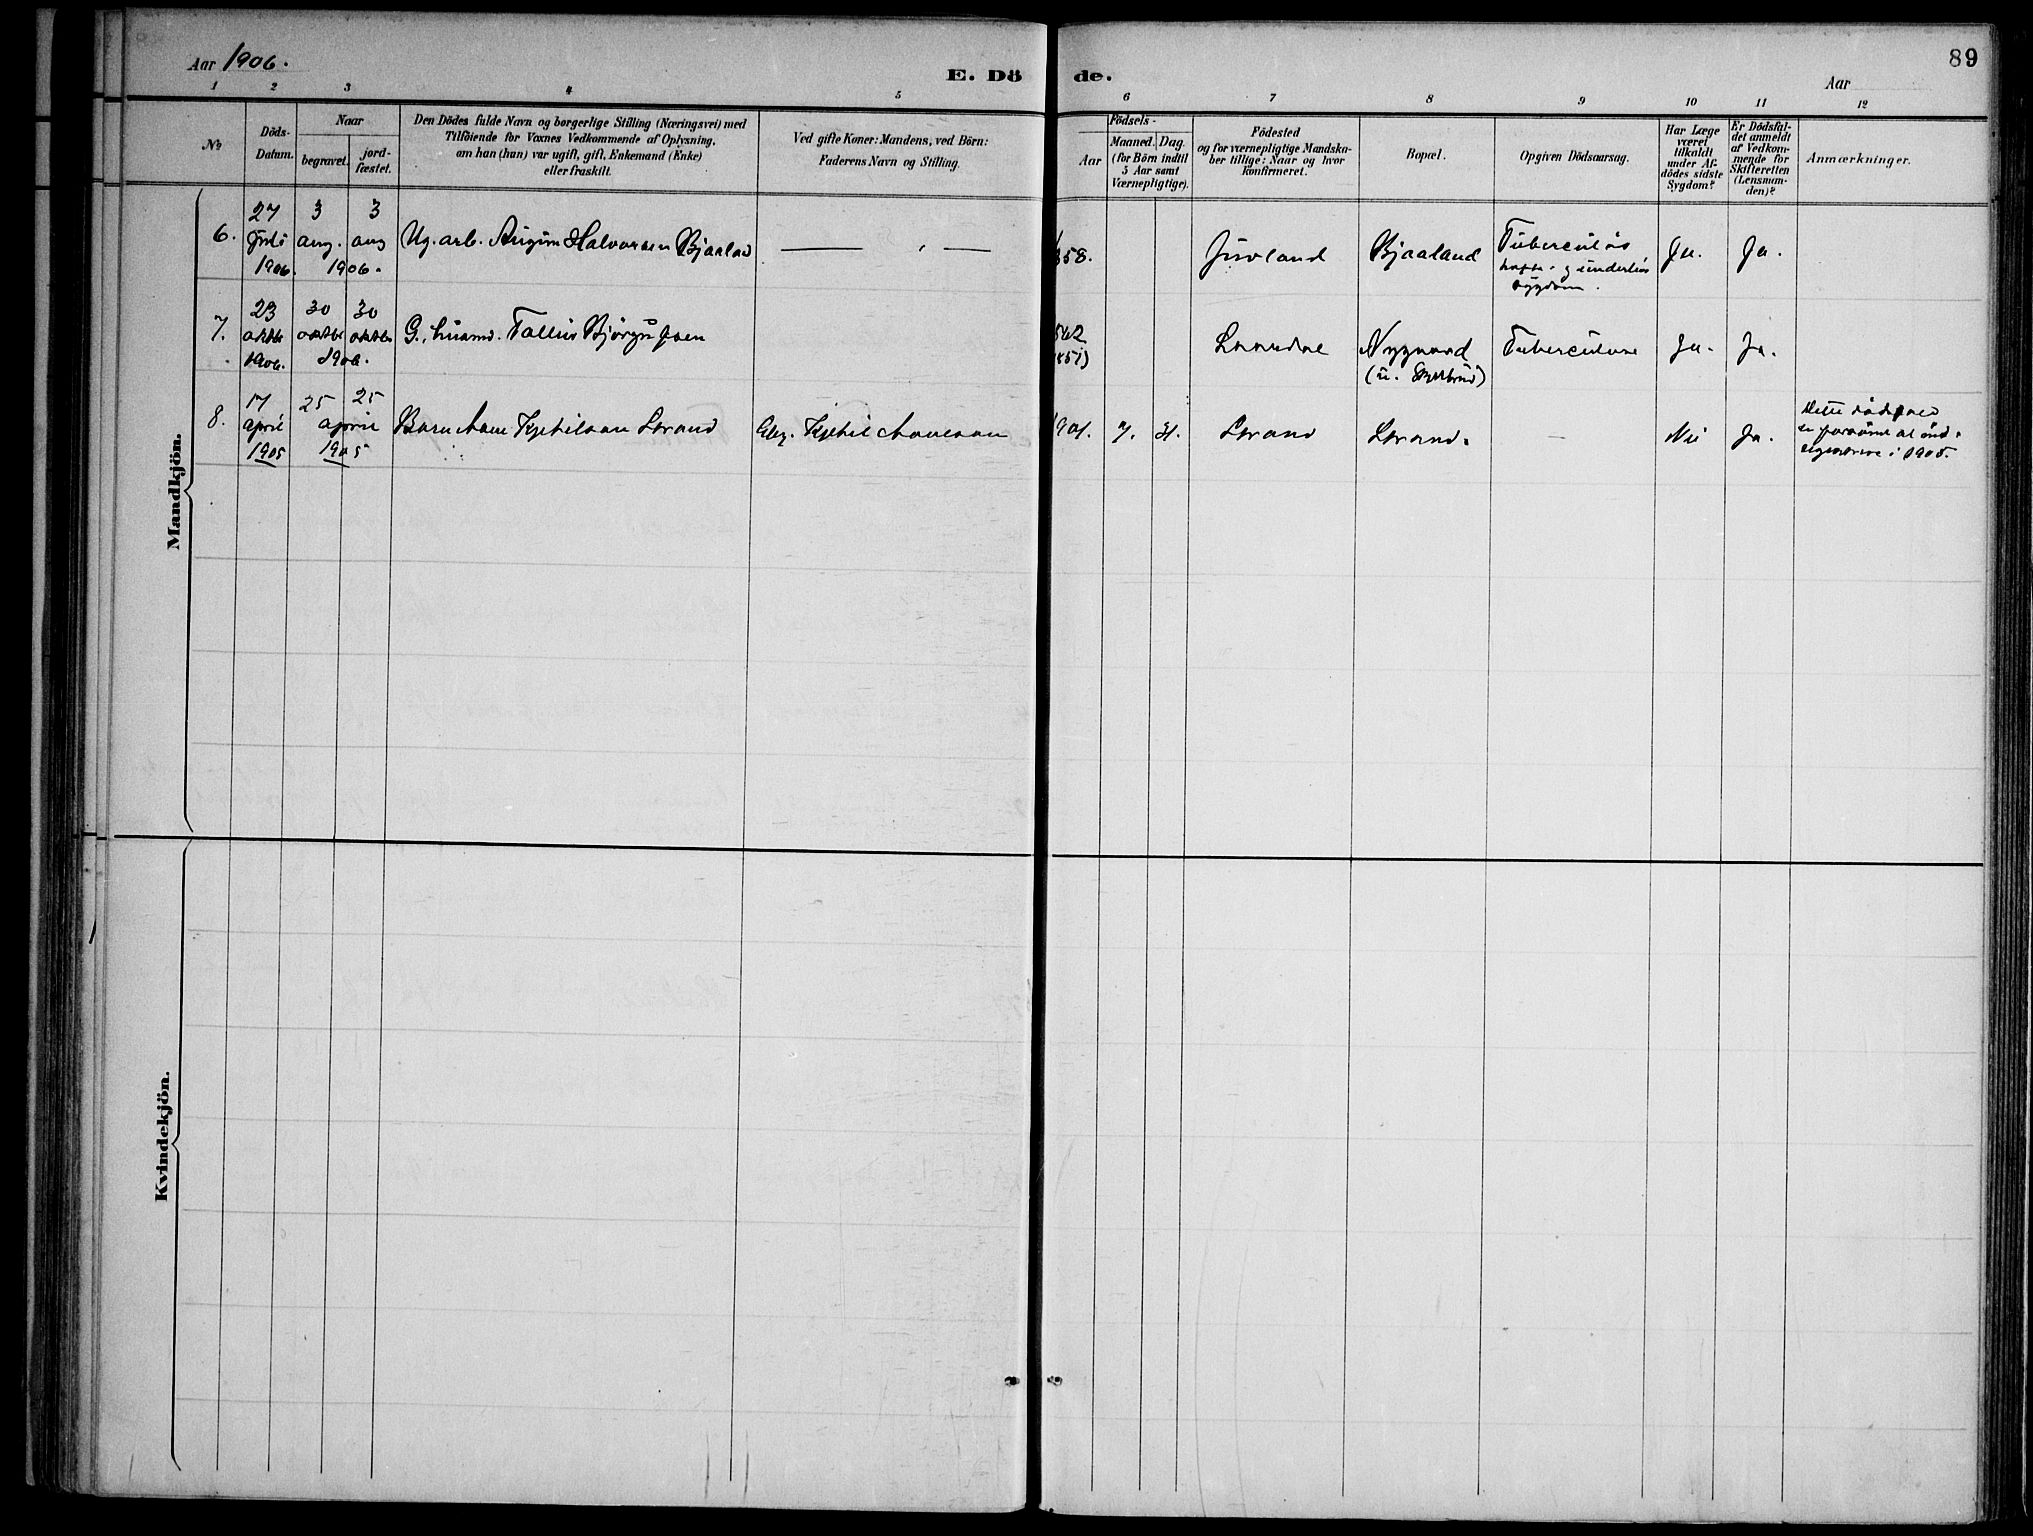 Aar 1906.
E. Dö
de.
Aar
89
1 2 3 4 5 6 7 8 9 10 11 12
№
Döds-
Datum.
Naar
begravet.
jord-
fæstet.
Den Dödes fulde Navn og borgerlige Stilling (Næringsvei) med
Tilföiende for Voxnes Vedkommende af Oplysning,
om han (hun) var ugift, gift, Enkemand (Enke)
eller fraskilt.
Ved gifte Koner: Mandens, ved Börn:
Faderens Navn og Stilling.
Födsels-
Aar
Maaned. Dag.
(for Börn indtil
5 Aar samt
Værnepligtige).
Födested
og for værnepligtige Mandska-
ber tillige: Naar og hvor
konfirmeret.
Bopæl.
Opgiven Dödsaarsag.
Har Læge
været
tilkaldt
under Af-
dödes sidste
Sygdom?
Er Dödsfal-
det anmeldt
af Vedkom-
mende for
Skifteretten
(Lensman-
den)?
Anmærkninger.
Mandkjön.
6. 27 3 3
aug. aug
1906. 1906.
Ug. arb. Halvorsen Bjaaland
858. Juvland Bjaaland Tuberculös
sygdom.
Ja. Ja.
7. 23 30 30
oktbr oktbr oktbr
1906. 1906.
G. husmd. Tallus
Nygaard
Tuberculose Ja. Ja.
8. 17 25 25
april april
1905 1905
Barn Aane Kjetilsen
Kjetil Aanesen
901. 7. 31. Nei Ja.
Dette dödsfald
i 1905.
Kvindekjön.